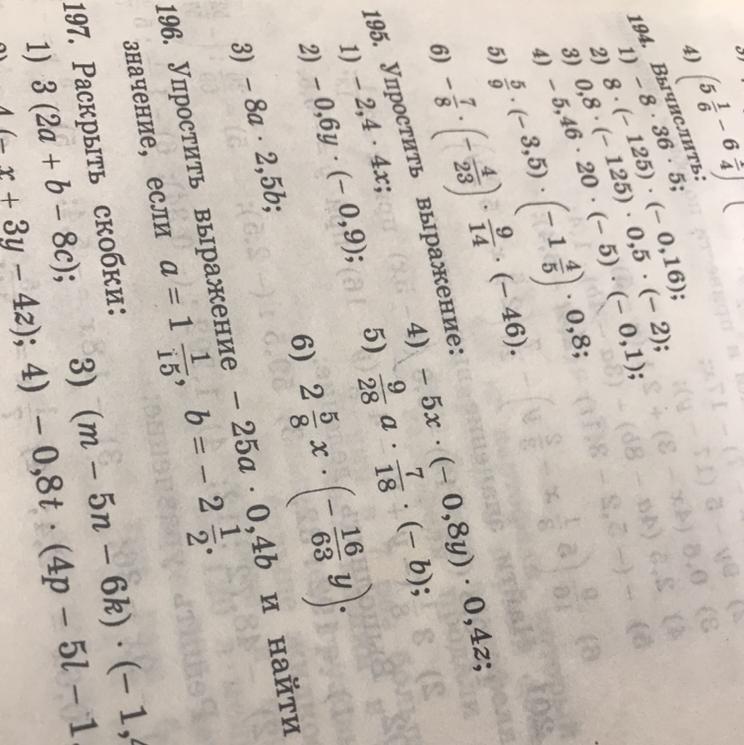 4) (5 1/6 − 6 1/4)
194. Вычислить:
1) − 8 · 36 · 5;
2) 8 · (− 125) · (− 0,16);
3) 0,8 · (− 125) · 0,5 · (− 2);
4) − 5,46 · 20 · (− 5) · (− 0,1);
5) 5/9 · (−3,5) · (− 1 4/5) · 0,8;
6) − 7/8 · (− 4/23) · 9/14 · (− 46).
195. Упростить выражение:
1) − 2,4 · 4x; 4) − 5x · (− 0,8y) · 0,4z;
2) − 0,6y · (− 0,9); 5) 9/28 a · 7/18 · (− b);
3) − 8a · 2,5b; 6) 2 5/8 x · (− 16/63 y).
196. Упростить выражение − 25a · 0,4b и найти
значение, если a = 1 1/15, b = − 2 1/2.
197. Раскрыть скобки:
1) 3 (2a + b − 8c); 3) (m − 5n − 6k) · (− 1,4
x + 3y − 4z); 4) − 0,8t · (4p − 5l − 1